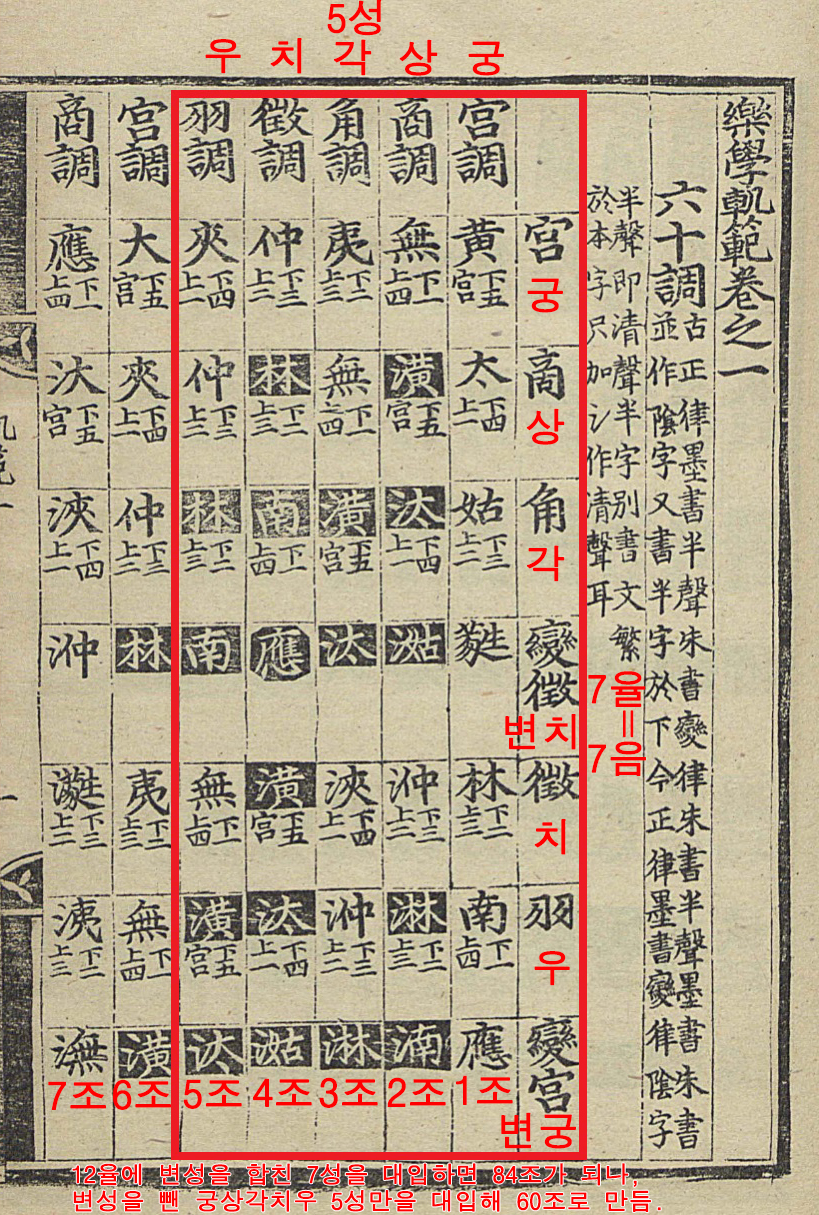 5성
우 치 각 상 궁
樂學軌範卷之一
六十調
古正律墨書半聲朱書變律朱書半聲墨書朱書
並作陰字又書半字於下今正律墨書變律陰字
半聲即清聲半字別書文繁
於本字只加氵作清聲耳
7율
=
7음
宮 궁 商 상 角 각 變徵 변치 徵 치 羽 우 變宮 변궁
宮調 黃 下五 宮 太 下四 上一 姑 下三 上二 蕤 林 下二 上三 南 下一 上四 應 1조
商調 無 下一 上四 潢 下五 宮 汰 下四 上一 㴌 㳞 下三 上二 淋 下二 上三 湳 2조
角調 夷 下二 上三 無 下一 上四 潢 下五 宮 汰 浹 下四 上一 㳞 下三 上二 淋 3조
徵調 仲 下三 上二 林 下二 上三 南 下一 上四 應 潢 下五 宮 汰 下四 上一 㴌 4조
羽調 夾 下四 上一 仲 下三 上二 林 下二 上三 南 無 下一 上四 潢 下五 宮 汰 5조
宮調 大 下五 宮 夾 下四 上一 仲 下三 上二 林 夷 下二 上三 無 下一 上四 潢 6조
商調 應 下一 上四 汏 下五 宮 浹 下四 上一 㳞 下三 上二 洟 下二 上三 潕 7조
12율에 변성을 합친 7성을 대입하면 84조가 되나,
변성을 뺀 궁상각치우 5성만을 대입해 60조로 만듬.